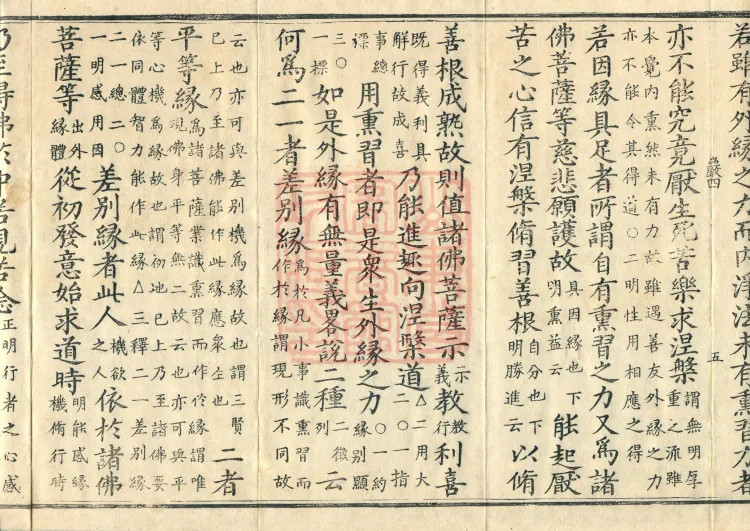 若雖有外縁之力而内淨法未有熏習力者
亦不能究竟厭生死苦樂求涅槃 謂無明厚重之流雖
本覺内熏然未有力故雖遇善友外縁之力
亦不能令其得道〇二明性用相應之得
若因縁具足者所謂自有熏習之力又為諸
佛菩薩等慈悲願護故 具因縁也下明熏益云 能起厭
苦之心信有涅槃脩習善根 自分也下明勝進云 以脩
善根成熟故則值諸佛菩薩示 示義 教 教行 利喜
既得義利具解行故成喜 乃能進趣向涅槃道 △二用大二〇一指
事總標 用熏習者即是衆生外縁之力 〇一約縁別顯
三〇一標 如是外縁有無量義畧說二種 二徵列 云
何為二一者差別縁 為於凡小事識熏習而作於縁謂現形不同故
云也亦可與差別機為縁故也謂三賢
已上乃至諸佛能作此縁應衆生也 二者
平等縁 為諸菩薩業識熏習而作於縁謂唯現佛身平等無二故云也亦可與平
等心機為縁故也謂初地已上乃至諸佛要
依同體智力能作此縁△三釋二一差別縁
二一總二〇一明感用因 差別縁者此人 機欲 依於諸佛
菩薩等 出外縁體 從初發意始求道時 明能感縁機脩行時
乃至得佛於中若見若念 正明行者之心感
嚴四
五